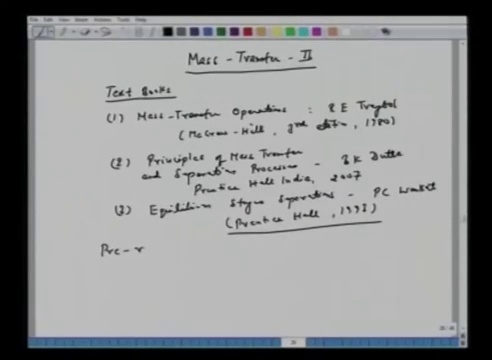 Mass - Transfer - II
Text Books
(1) Mass-Transfer Operations : R E Treybal
(McGraw-Hill, 3rd edition, 1980)
(2) Principles of Mass Transfer
and Separation Processes - B K Dutta
Prentice Hall India, 2007
(3) Equilibrium Stages Separations - PC Wankat
(Prentice Hall, 1993)
Pre-r